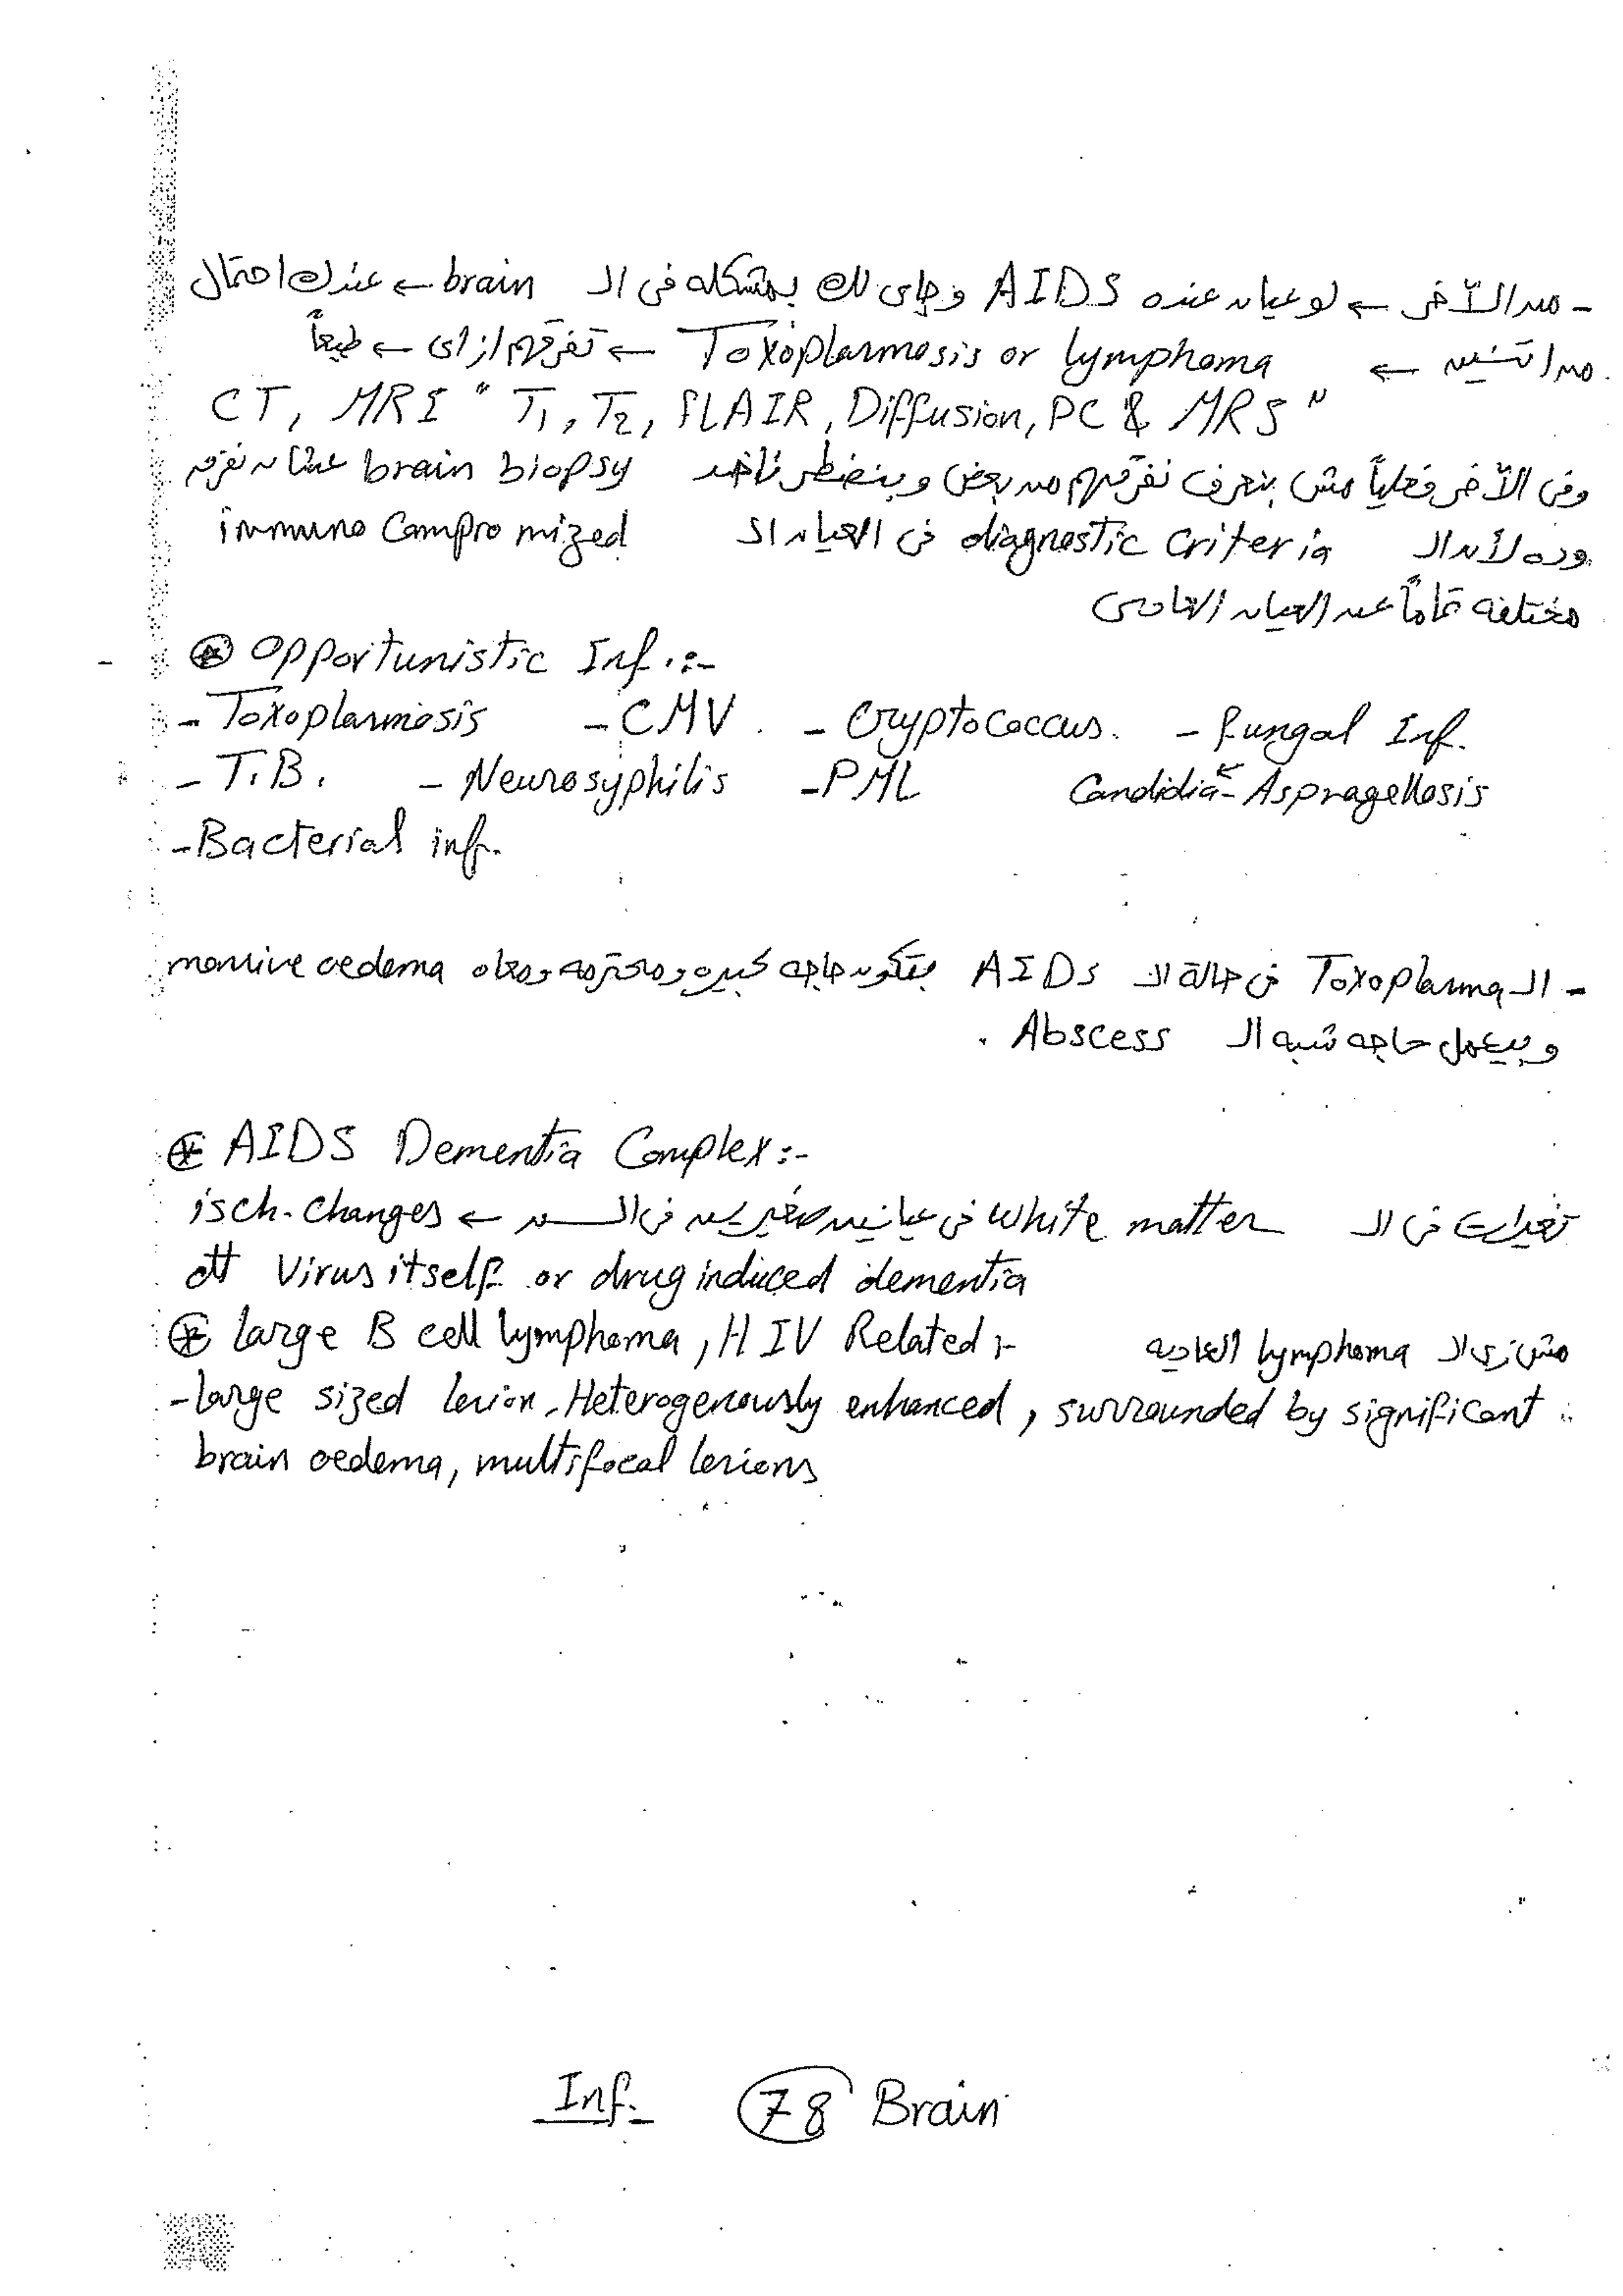 - من الآخر ← لو عيان عنده AIDS وجاى لك بمشكله فى الـ brain ← عندك احتمال
من اتنين ← Toxoplasmosis or lymphoma ← تفرقهم ازاى ← طبعاً
CT, MRI " T1, T2, FLAIR, Diffusion, PC & MRS "
وفى الآخر فعلياً مش بنعرف نفرقهم من بعض وبنضطر ناخد brain biopsy عشان نفرقهم
وده لأن الـ diagnostic criteria فى العيان الـ immuno compromized
مختلفه تماماً عن العيان العادى
⊛ Opportunistic Inf. :-
- Toxoplasmosis - CMV - Cryptococcus. - Fungal Inf.
- T.B. - Neurosyphilis - PML Candidia - Aspragellosis
- Bacterial inf.
- الـ Toxoplasma فى حالة الـ AIDS بتكون حاجه كبيره ومحترمه ومعاه massive oedema
وبيعمل حاجه شبه الـ Abscess .
⊛ AIDS Dementia Complex :-
تغيرات فى الـ white matter فى عيانين صغيرين فى السن ← isch. changes
dt Virus itself or drug induced dementia
⊛ Large B cell lymphoma, HIV Related :- مش زى الـ lymphoma العاديه
- large sized lesion, Heterogenously enhanced, surrounded by significant
brain oedema, multifocal lesions
Inf. 78 Brain